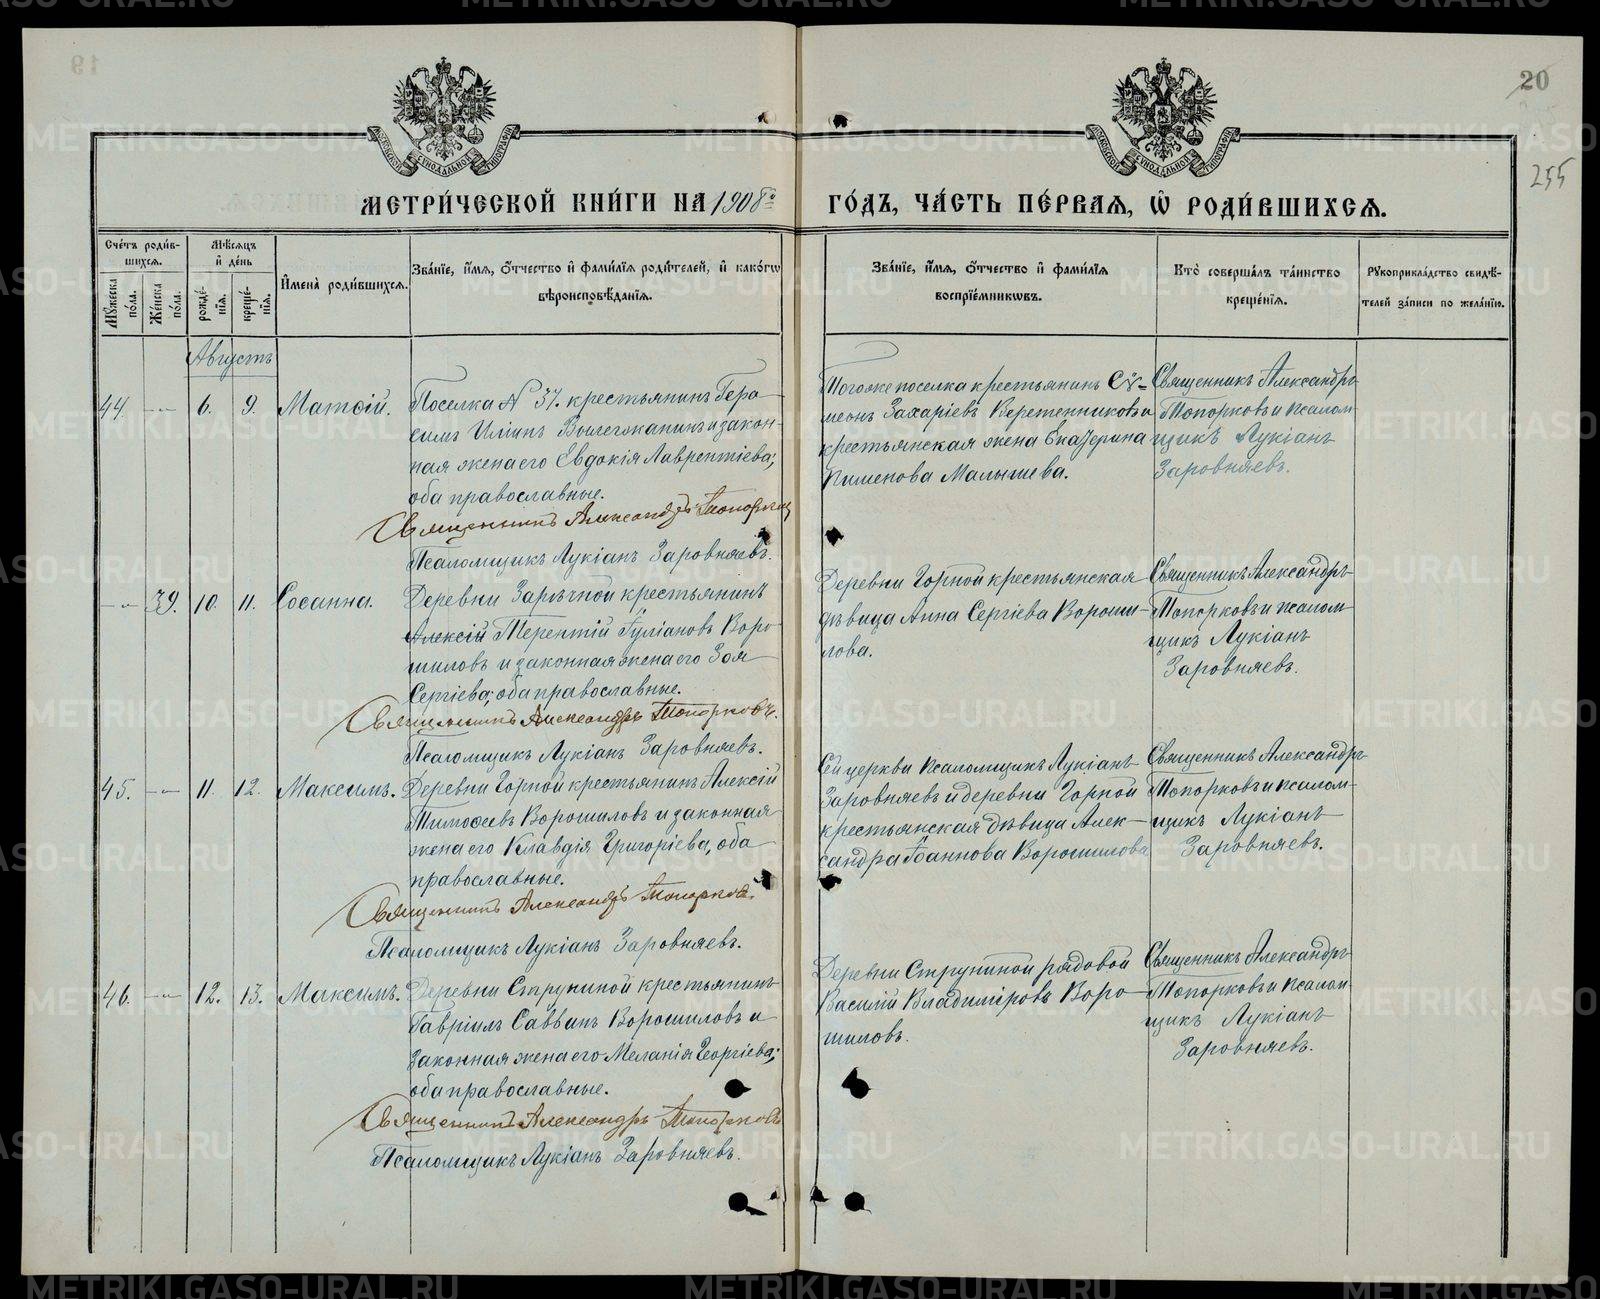 20
255
МЕТРИ́ЧЕСКОЙ КНИ́ГИ НА 1908й
ГО́ДЪ, ЧА́СТЬ ПЕ́РВАЯ, Ѡ РОДИ́ВШИХСЯ.
Сче́тъ роди́в-
шихся.
Мꙋ́жеска по́ла.
Же́нска по́ла.
Мѣ́сяцъ
и де́нь
рожде́-
нїя.
креще́-
нїя.
Имена̀ роди́вшихся.
Зва́нїе, и́мя, о́тчество и фами́лїя роди́телей, и како́гѡ
вѣроисповѣ́данїя.
Зва́нїе, и́мя, о́тчество и фами́лїя
воспрїе́мникѡвъ.
Кто̀ соверша́лъ та́инство
креще́нїя.
Рꙋкоприкла́дство свидѣ́-
телей за́писи по жела́нїю.
Августъ
44. —„— 6. 9. Матѳій.
Поселка № 37. крестьянинъ Гера
симъ Иліинъ Вылегжанинъ и закон-
ная жена его Евдокія Лаврентіева;
оба православные.
Священникъ Александръ Топорков
Псаломщикъ Лукіанъ Заровняевъ.
Тогоже поселка крестьянинъ Сѵ-
меонъ Захаріевъ Веретенниковъ и
крестьянская жена Екатерина
Пименова Малышева.
Священникъ Александръ
Топорковъ и псалом
щикъ Лукіанъ
Заровняевъ.
—„— 39. 10. 11. Сосанна.
Деревни Зарѣчной крестьянинъ
Алексій Терентій Іуліановъ Воро-
шиловъ и законная жена его Зоя
Сергіева; оба православные.
Священникъ Александръ Топорковъ.
Псаломщикъ Лукіанъ Заровняевъ.
Деревни Горной крестьянская
дѣвица Анна Сергіева Вороши-
лова.
Священникъ Александръ
Топорковъ и псалом-
щикъ Лукіанъ
Заровняевъ.
45. —„— 11. 12. Максимъ.
Деревни Горной крестьянинъ Алексій
Тимоѳеевъ Ворошиловъ и законная
жена его Клавдія Григоріева, оба
православные.
Священникъ Александръ Топорков.
Псаломщикъ Лукіанъ Заровняевъ.
Сей церкви псаломщикъ Лукіанъ
Заровняевъ и деревни Горной
крестьянская дѣвица Алек-
сандра Іоаннова Ворошилова
Священникъ Александръ
Топорковъ и псалом-
щикъ Лукіанъ
Заровняевъ.
46. —„— 12. 13. Максимъ.
Деревни Струниной крестьянинъ
Гавріилъ Саввинъ Ворошиловъ и
законная жена его Меланія Георгіева;
оба православные.
Священникъ Александръ Топорковъ
Псаломщикъ Лукіанъ Заровняевъ.
Деревни Струниной рядовой
Василій Владиміровъ Воро-
шиловъ.
Священникъ Александръ
Топорковъ и псалом
щикъ Лукіанъ
Заровняевъ.
METRIKI.GASO-URAL.RU